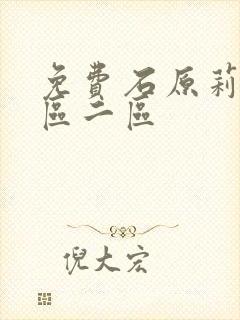 免費石原莉
區二區
倪大宏